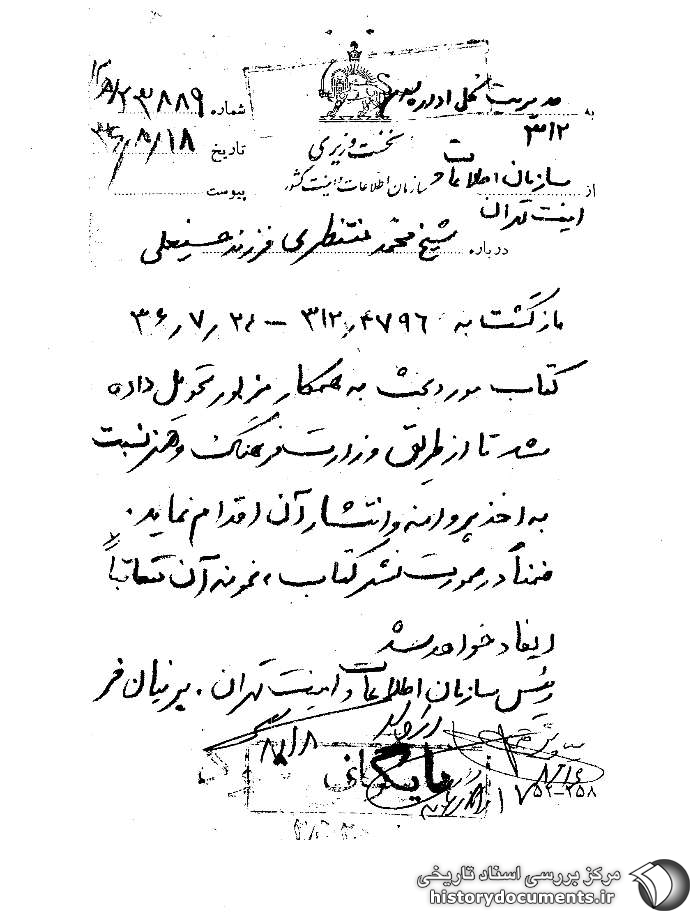 به مدیریت کل اداره سوم
۳۱۲
نخست وزیری
سازمان اطلاعات و امنیت کشور
شماره ۲۳۸۸۹
تاریخ ۳۶/۸/۱۸
پیوست
از سازمان اطلاعات و
امنیت تهران
درباره شیخ محمد منتظری فرزند حسینعلی
بازگشت به ۳۱۲٫۴۷۹۶ – ۳۶٫۷٫۲۰
کتاب مورد بحث به همکار مزبور تحویل داده
شد تا از طریق وزارت فرهنگ و هنر نسبت
به اخذ پروانه و انتشار آن اقدام نماید.
ضمناً در صورت نشر کتاب، نمونه آن متعاقباً
ایفاد خواهد شد
رئیس سازمان اطلاعات و امنیت تهران. پرنیان فر
۸/۱۸
بایگانی
۵۲-۲۵۸
مرکز بررسی اسناد تاریخی
historydocuments.ir